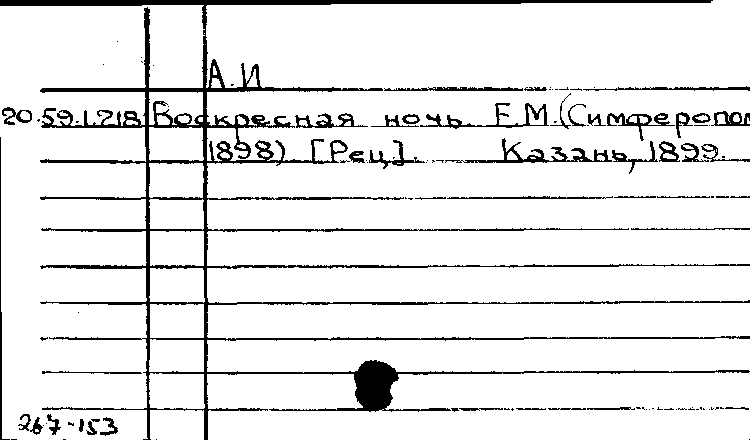 А.И
20.59.1.218 Воскресная ночь. Е.М.(Симферопол
1898) [Рец.]. Казань, 1899.
267-153